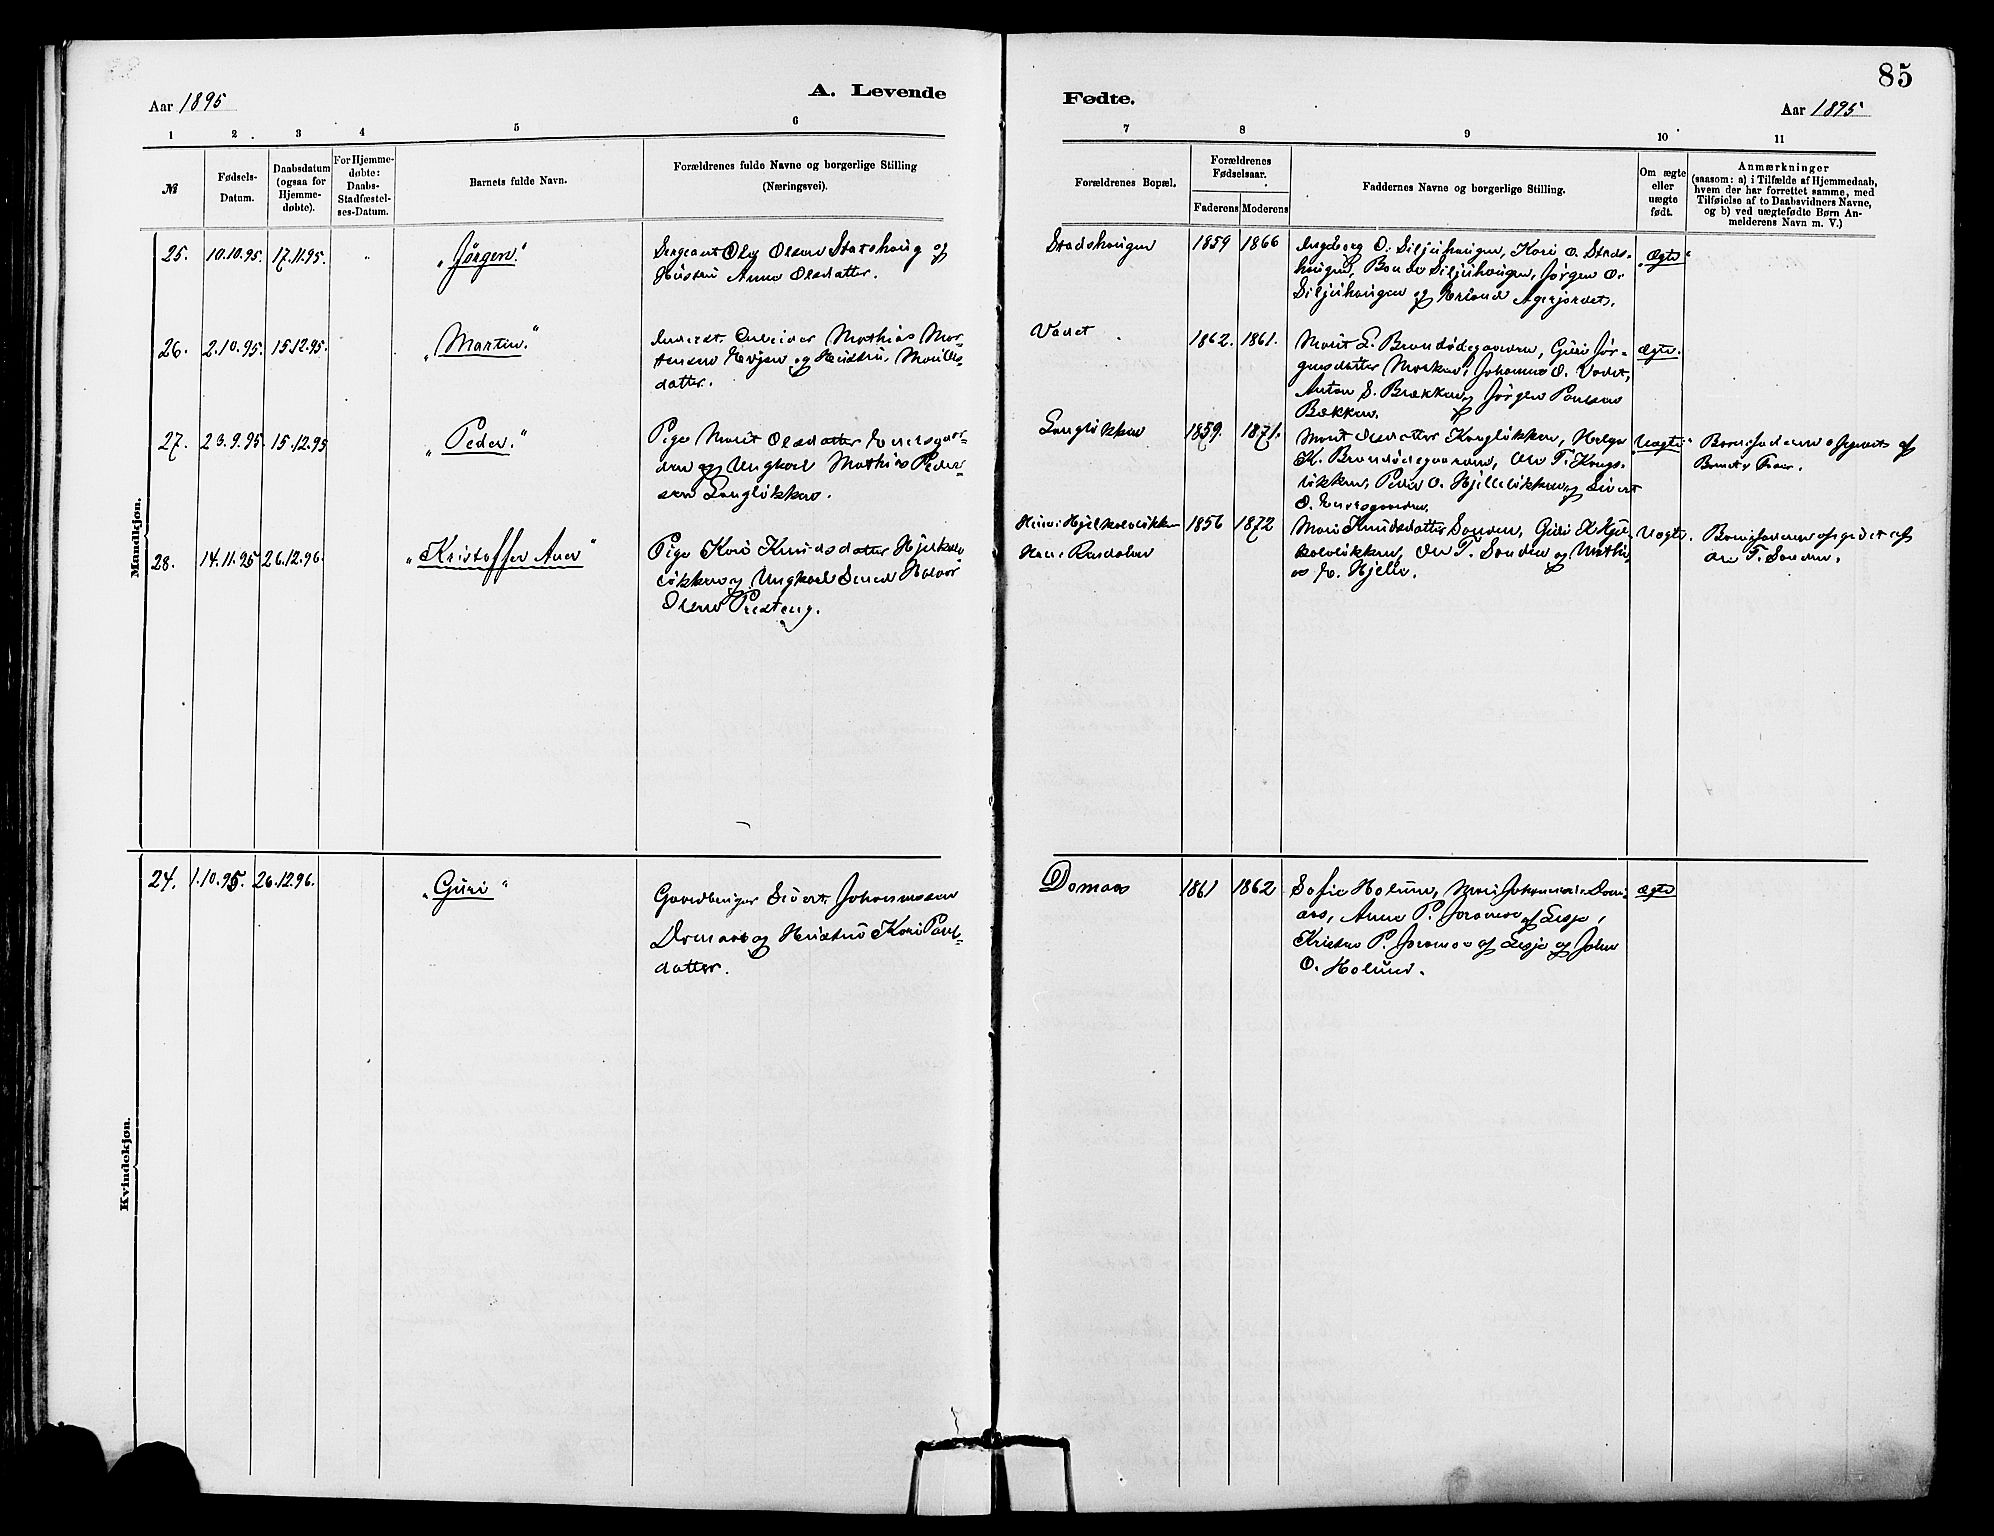 85
Aar 1895
A. Levende
Fødte.
Aar 1895
1 2 3 4 5 6
7 8 9 10 11
№
Fødsels-
Datum.
Daabsdatum
(ogsaa for
Hjemme-
døbte).
For Hjemme-
døbte:
Daabs-
Stadfæstel-
ses-Datum.
Barnets fulde Navn.
Forældrenes fulde Navne og borgerlige Stilling
(Næringsvei).
Forældrenes Bopæl.
Forældrenes
Fødselsaar.
Faderens Moderens
Faddernes Navne og borgerlige Stilling.
Om ægte
eller
uægte
født.
Anmærkninger
(saasom: a) i Tilfælde af Hjemmedaab,
hvem der har forrettet samme, med
Tilføielse af to Daabsvidners Navne,
og b) ved uægtefødte Børn An-
melderens Navn m. V.)
Mandkjøn.
25. 10.10.95. 17.11.95. "Jørgen."
Sergeant Ole Olsen Statshaug og
Hustru Anne Olsdatter.
Stadshaugen 1859 1866
Ingeborg O. Siljuhaugen, Kari O. Stads-
haugen, Siljuhaugen, Jørgen O.
Siljuhaugen og Erland Agerjordet.
"Ægte"
26. 2.10.95. 15.12.95. "Martin."
Arbeider Mathias Mor-
tensen og Hustru,
datter.
Vadet 1862. 1861.
Marit L. Brændødegaarden, Guri Jør-
gensdatter Johannes O. Vadet,
Anton S. Brækken, Jørgen Paulsen
Bækken.
Ægte.
27. 23.9.95. 15.12.95 "Peder."
Pige Marit Olsdatter
og Ungkarl Mathias Peder-
sen Langløkken.
Langløkken 1859. 1871.
Marit Langløkken, Helge
K. Brændødegaarden, Ole T.
løkken, Peder O. Hjelleløkken, Sivert
O.
"Uægte"
Barnefaderen opgivet af
28. 14.11.95 26.12.96. "Kristoffer Aner"
Pige Kari Knudsdatter Hjerkin-
løkken og Ungkarl Halvor
Olsen Presteng.
1856 1872
Mari Knudsdatter Sanden, Guri K.
Ole T. Sanden og Mathi-
as E. Hjelle.
Uægte.
Barnefaderen opgivet af
Ole T. Sanden.
Kvindekjøn.
24. 1.10.95. 26.12.96. "Guri"
Gaardbruger Sivert Johannessen
Domaas og Hustru Kari Paul-
datter.
Domaas 1861 1862
Sofie Holum, Mari Dom-
aas, Anne P. Joramo af Lesje,
Kristen P. Joramo af Lesje og John
O. Holum.
Ægte